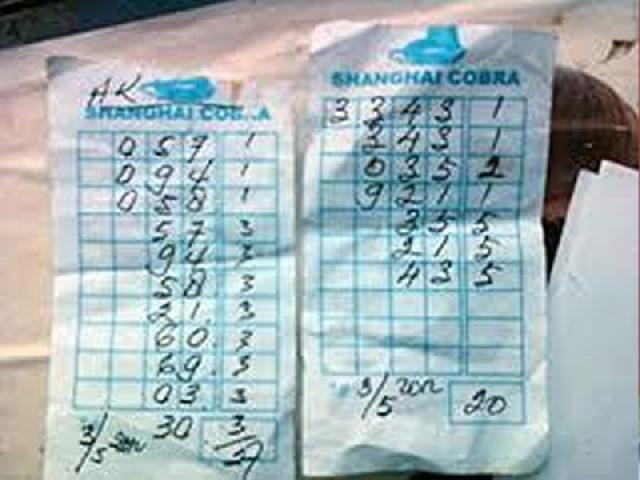 AK
SHANGHAI COBRA
0 5 7 1
0 9 4 1
0 5 8 1
5 7 3
9 4 3
5 8 3
2 1. 3
6 0. 3
6 9. 3
0 3. 3
3/5 30 3
SHANGHAI COBRA
3 3 4 3 1
3 4 3 1
0 3 5 2
9 2 1 1
3 5 5
2 1 5
4 3 5
3/5 20